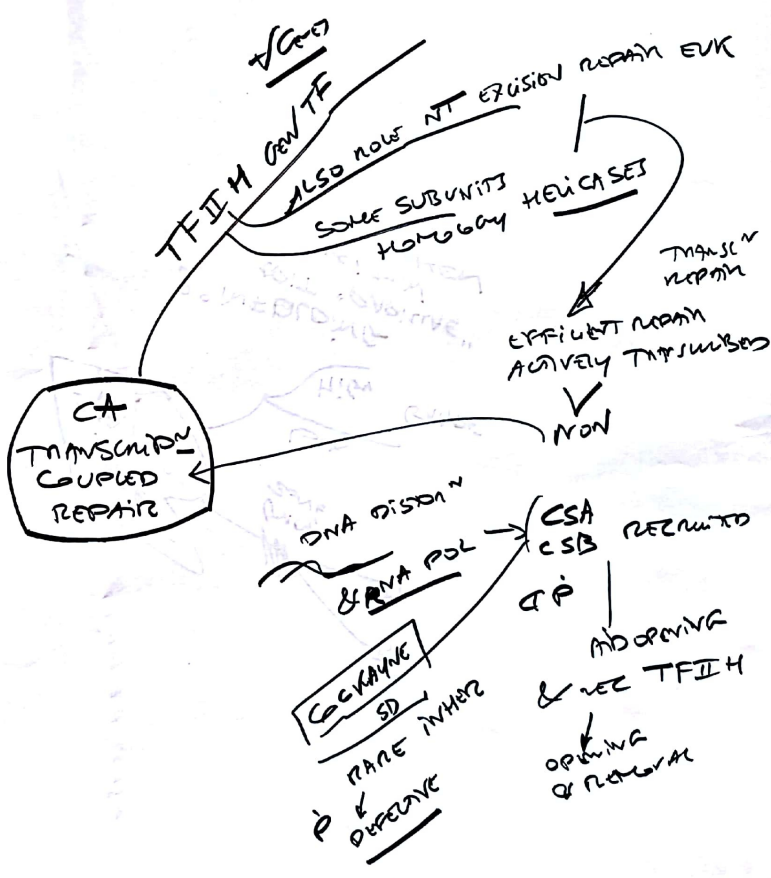 TFIIH GEN TF
ALSO ROLE NT EXCISION REPAIR EUK
SOME SUBUNITS
HOMOLOGY HELICASES
TRANSCᴺ
REPAIR
EFFICIENT REPAIR
ACTIVELY TRANSCRIBED
NON
TRANSCRIPᴺ
COUPLED
REPAIR
DNA DISTORᴺ
& RNA POL
CSA
CSB RECRUITED
AID OPENING
& REC TFIIH
OPENING
& REMOVAL
COCKAYNE
SD
RARE INHER
DEFECTIVE